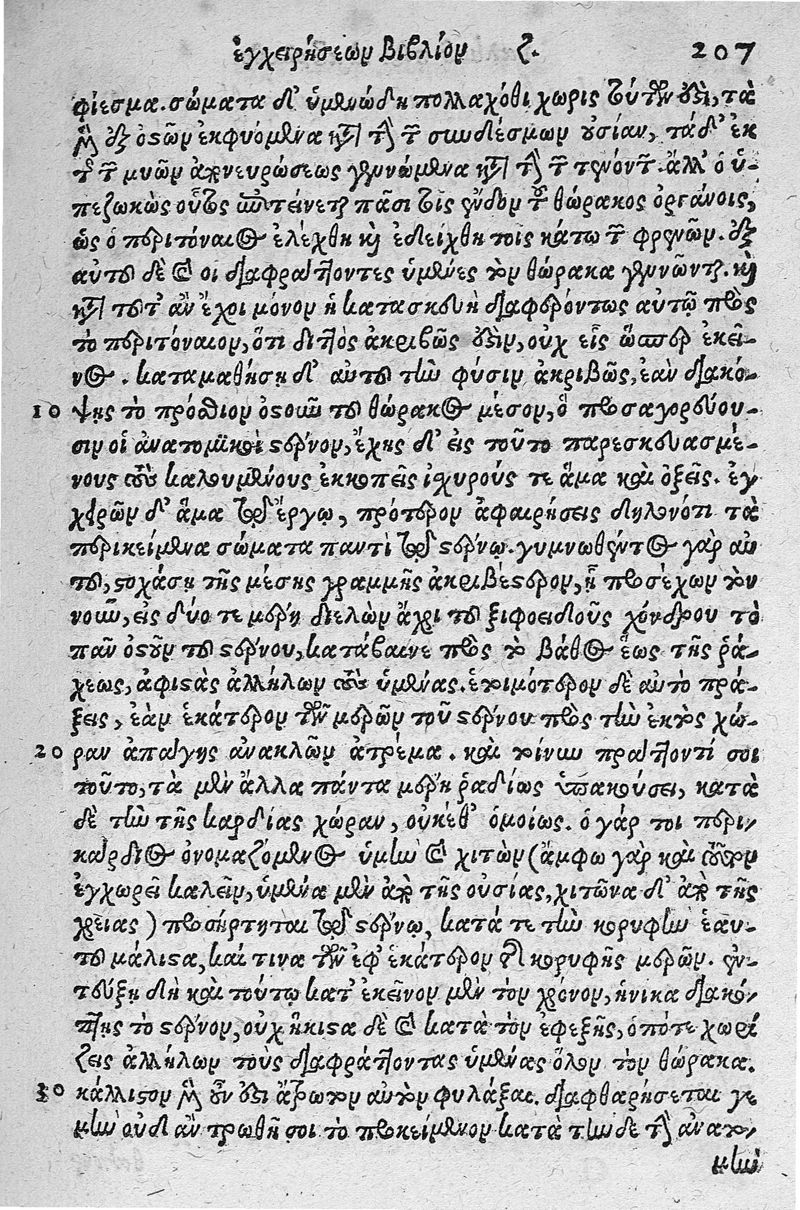 ἐγχειρήσεων βιβλίον ζ. 207
φίεσμα. σώματα δ' ὑμενώδη πολλαχόθι χωρὶς τούτων ἐστὶ, τὰ
μὲν ἐξ ὀστῶν ἐκφυόμενα κατὰ τὴν τῶν συνδέσμων οὐσίαν, τὰ δ' ἐκ
τῆς τῶν μυῶν ἀπονευρώσεως γεννώμενα κατὰ τὴν τῶν τενόντων. ἀλλ' ὁ ὑ-
πεζωκὼς οὗτος ὑποτείνεται πᾶσι τοῖς ἔνδον τοῦ θώρακος ὀργάνοις,
ὡς ὁ περιτόναιος ἐλέχθη καὶ ἐδείχθη τοῖς κάτω τῶν φρενῶν. ἐξ
αὐτοῦ δὲ καὶ οἱ διαφράττοντες ὑμένες τὸν θώρακα γεννῶνται. καὶ
κατὰ τοῦτ' ἂν ἔχοι μόνον ἡ κατασκευὴ διαφερόντως αὐτῷ πρὸς
τὸ περιτόναιον, ὅτι διττὸς ἀκριβῶς ἐστιν, οὐχ εἷς ὥσπερ ἐκεῖ-
νος. καταμαθήσῃ δ' αὐτοῦ τὴν φύσιν ἀκριβῶς, ἐὰν διακό-
10 ψῃς τὸ πρόσθιον ὀστοῦν τοῦ θώρακος μέσον, ὃ προσαγορεύου-
σιν οἱ ἀνατομικοὶ στέρνον, ἔχῃς δ' εἰς τοῦτο παρεσκευασμέ-
νους τοὺς καλουμένους ἐκκοπεῖς ἰσχυρούς τε ἅμα καὶ ὀξεῖς. ἐγ
χειρῶν δ' ἅμα τῷ ἔργῳ, πρότερον ἀφαιρήσεις δηλονότι τὰ
περικείμενα σώματα παντὶ τῷ στέρνῳ. γυμνωθέντος γὰρ αὐ
τοῦ, στοχάσῃ τῆς μέσης γραμμῆς ἀκριβέστερον, ᾗ προσέχων τὸν
νοῦν, εἰς δύο τε μέρη διελὼν ἄχρι τοῦ ξιφοειδοῦς χόνδρου τὸ
πᾶν ὀστοῦν τοῦ στέρνου, κατάβαινε πρὸς τὸ βάθος ἕως τῆς ῥά-
χεως, ἀφιστὰς ἀλλήλων τοὺς ὑμένας. ἑτοιμότερον δὲ αὐτὸ πρά-
ξεις, ἐὰν ἑκάτερον τῶν μερῶν τοῦ στέρνου πρὸς τὴν ἐκτὸς χώ-
20 ραν ἀπάγῃς ἀνακλῶν ἀτρέμα. καὶ τοίνυν πράττοντί σοι
τοῦτο, τὰ μὲν ἄλλα πάντα μέρη ῥαδίως ὑπακούσει, κατὰ
δὲ τὴν τῆς καρδίας χώραν, οὐκέθ' ὁμοίως. ὁ γάρ τοι περι-
κάρδιος ὀνομαζόμενος ὑμὴν καὶ χιτὼν (ἄμφω γὰρ καὶ τοῦτον
ἐγχωρεῖ καλεῖν, ὑμένα μὲν ἀπὸ τῆς οὐσίας, χιτῶνα δ' ἀπὸ τῆς
χρείας) προσήρτηται τῷ στέρνῳ, κατά τε τὴν κορυφὴν ἑαυ-
τοῦ μάλιστα, καί τινα τῶν ἐφ' ἑκάτερον τῆς κορυφῆς μερῶν. ἐν-
τεύξῃ δὴ καὶ τούτῳ κατ' ἐκεῖνον μὲν τὸν χρόνον, ἡνίκα διακό-
πτῃς τὸ στέρνον, οὐχ ἥκιστα δὲ καὶ κατὰ τὸν ἐφεξῆς, ὁπότε χωρί
ζεις ἀλλήλων τοὺς διαφράττοντας ὑμένας ὅλον τὸν θώρακα.
30 κάλλιστον μὲν οὖν ἐστι ἄτρωτον αὐτὸν φυλάξαι. διαφθαρήσεται γε
μὴν οὐδ' ἂν τρωθῇ σοι τὸ προκείμενον κατὰ τὴν δε τὴν ἀνατο-
μὴν